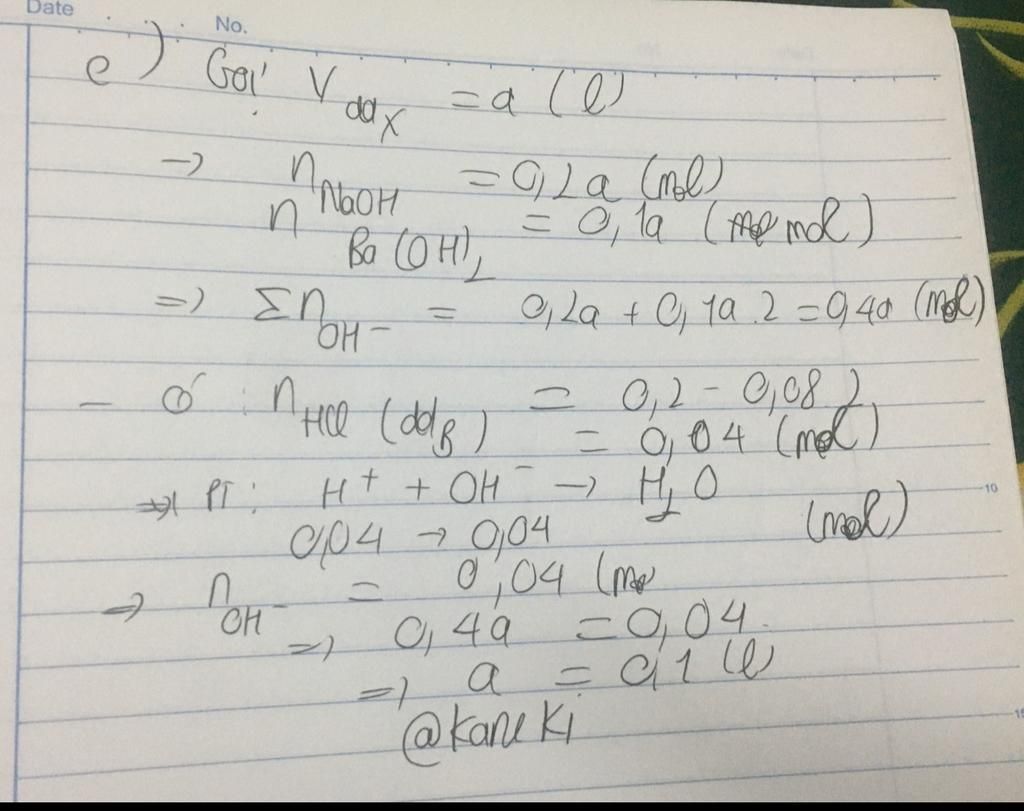 Date
No.
e) Gọi V ddX = a (l)
→ n NaOH = 0,2a (mol)
n Ba(OH)2 = 0,1a (mol)
=> Σn OH- = 0,2a + 0,1a.2 = 0,4a (mol)
- Ở : n HCl (ddB) = 0,2 - 0,08.2
= 0,04 (mol)
=> PT: H+ + OH- → H2O
0,04 → 0,04 (mol)
=> n OH- = 0,04 (mo
=> 0,4a = 0,04.
=> a = 0,1 (l)
@Kaneki
10